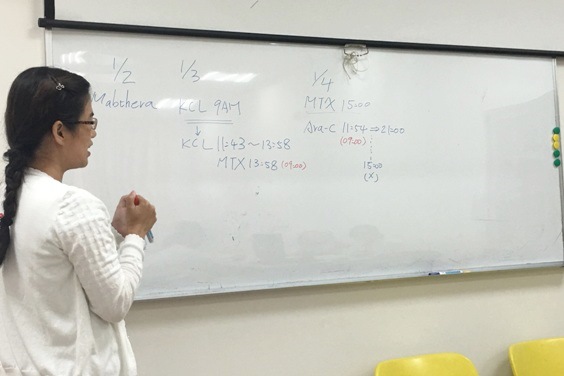 1/2
Mabthera
1/3
KCL 9AM
KCL 11:43~13:58
MTX 13:58 (09:00)
1/4
MTX 15:00
Ara-C 11:54 ⇒ 21:00
(09:00)
15:00
(X)